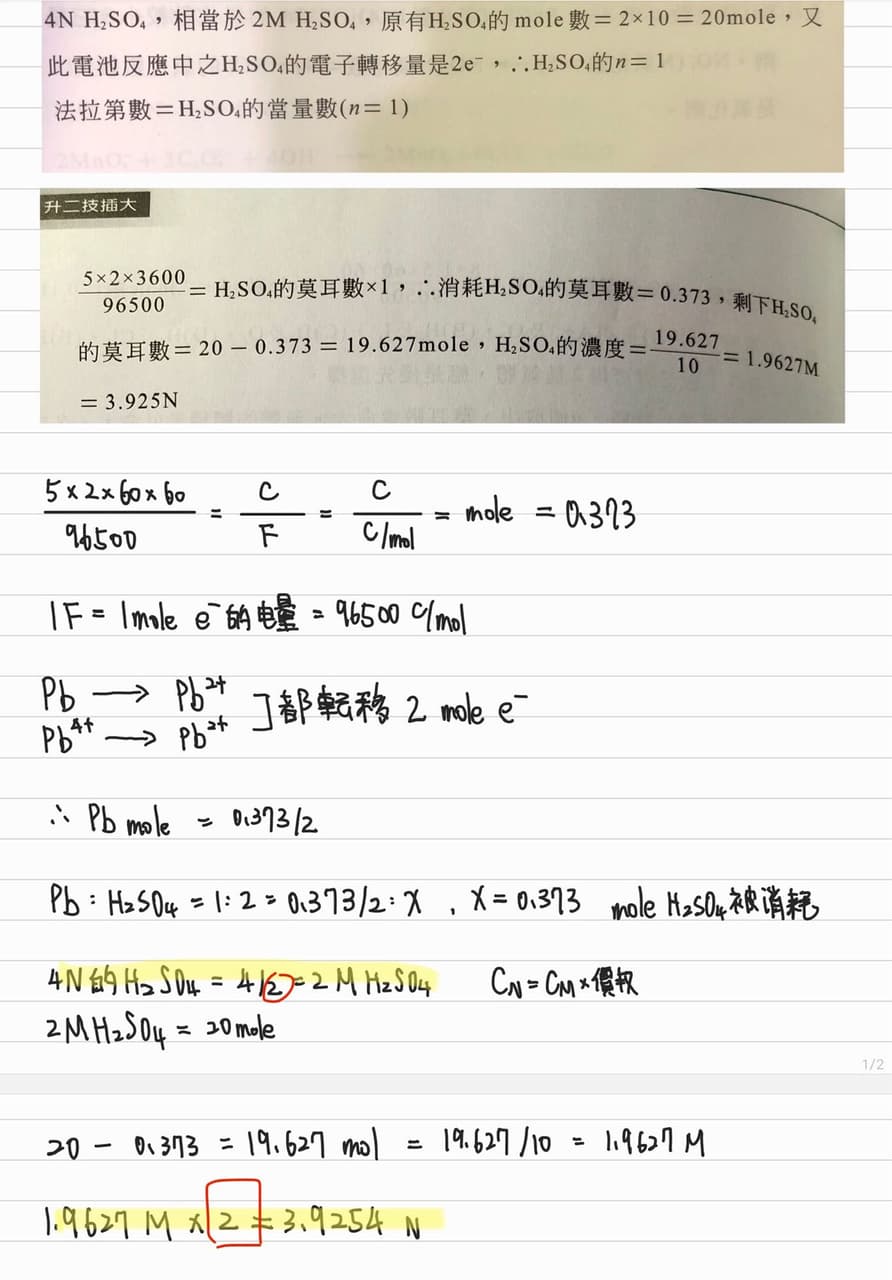 4N H₂SO₄，相當於2M H₂SO₄，原有H₂SO₄的mole數＝2×10＝20mole，又
此電池反應中之H₂SO₄的電子轉移量是2e⁻，∴H₂SO₄的n＝1
法拉第數＝H₂SO₄的當量數(n＝1)
升二技插大
5×2×3600/96500＝H₂SO₄的莫耳數×1，∴消耗H₂SO₄的莫耳數＝0.373，剩下H₂SO₄
的莫耳數＝20－0.373＝19.627mole，H₂SO₄的濃度＝19.627/10＝1.9627M
＝3.925N
5×2×60×60/96500 = C/F = C/(C/mol) = mole = 0.373
1F = 1mole e⁻的电量 = 96500 C/mol
Pb → Pb²⁺
Pb⁴⁺ → Pb²⁺ ] 都転移 2 mole e⁻
∴ Pb mole = 0.373/2
Pb : H₂SO₄ = 1 : 2 = 0.373/2 : X , X = 0.373 mole H₂SO₄被消耗
4N的H₂SO₄ = 4/2 = 2M H₂SO₄ CN = CM × 價
2M H₂SO₄ = 20mole
1/2
20 - 0.373 = 19.627 mol = 19.627/10 = 1.9627 M
1.9627 M × 2 = 3.9254 N